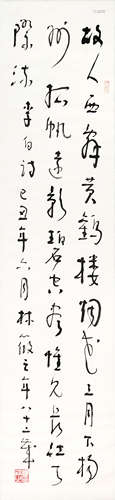 故人西辭黃鶴樓烟花三月下揚
州孤帆遠影碧空盡惟見長江天
際流李白詩己丑年六月林筱之年八十二